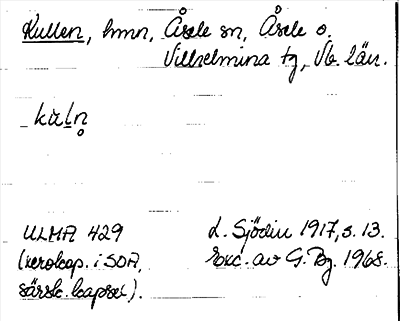 Kullen, hmn, Åsele sn, Åsele o.
Vilhelmina tg, Vb. län.
kuln̥
ULMA 429
(xerokop. i SOA,
särsk. kapsel).
L. Sjödin 1917, s. 13.
Exc. av G. Bg. 1968.